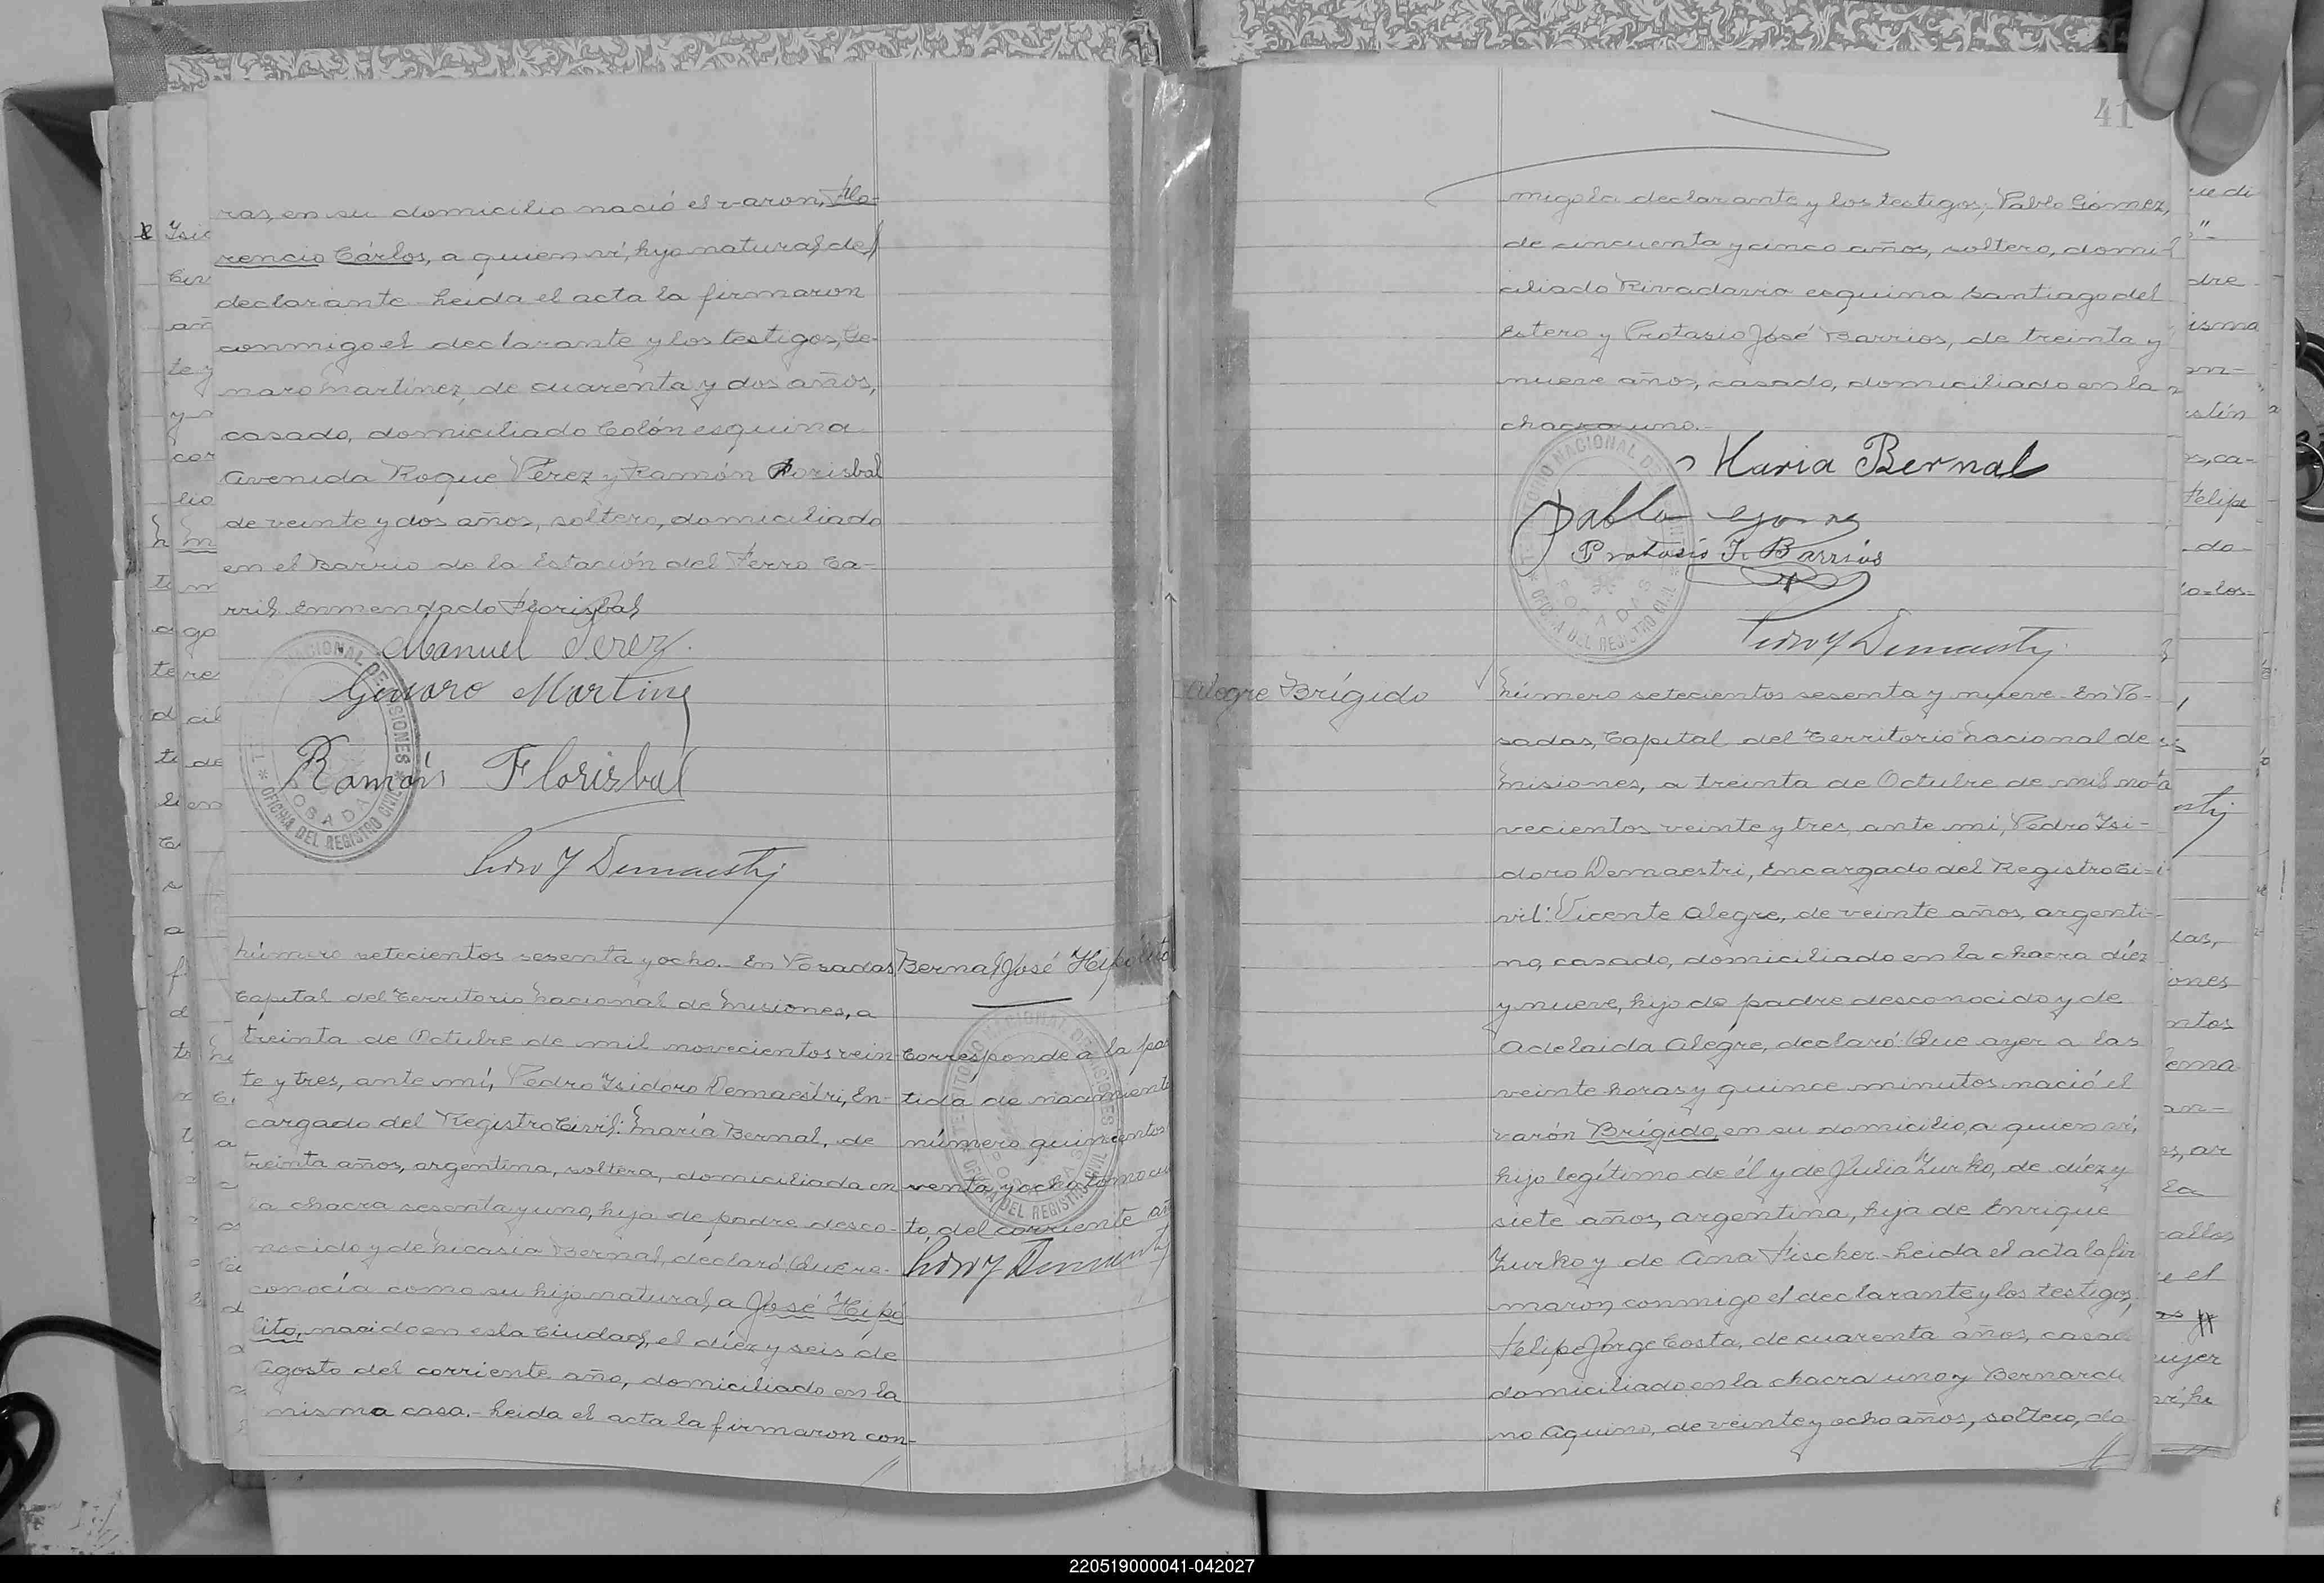 ras, en su domicilio nació el varon, Flo-
rencio Cárlos, a quien ví, hijo natural del
declarante.- Leida el acta la firmaron
conmigo el declarante y los testigos, Ge-
naro Martínez, de cuarenta y dos años,
casado, domiciliado Colón esquina
Avenida Roque Pérez y Ramón Florisbal
de veinte y dos años, soltero, domiciliado
en el Barrio de la Estación del Ferro Ca-
rril. Enmendado Florisbal
Manuel Perez
Genaro Martinez
Ramón Florisbal
Pedro Y Demaestri
Número setecientos sesenta y ocho.- En Posadas
Capital del Territorio Nacional de Misiones, a
treinta de Octubre de mil novecientos vein-
te y tres, ante mí, Pedro Isidoro Demaestri, En-
cargado del Registro Civil: María Bernal, de
treinta años, argentina, soltera, domiciliada en
la chacra sesenta y uno, hija de padre desco-
nocido y de Nicasia Bernal, declaró: Que re-
conocía como su hijo natural, a José Hipó
lito, nacido en esta Ciudad, el diez y seis de
Agosto del corriente año, domiciliado en la
misma casa.- Leida el acta la firmaron con-
Bernal José Hipólito
Corresponde a la par
tida de nacimiento
número quinientos
venta y ocho tomo cu
to, del corriente añ
Pedro Y Demaestri
41
migo la declarante y los testigos; Pablo Gómez,
de cincuenta y cinco años, soltero, domi-
ciliado Rivadavia esquina Santiago del
Estero y Protasio José Barrios, de treinta y
nueve años, casado, domiciliado en la
chacra uno.-
Maria Bernal
Pablo Gomez
Protasio J. Barrios
Pedro Y Demaestri
Alegre Brígido
Número setecientos sesenta y nueve.- En Po-
sadas, Capital del Territorio Nacional de
Misiones, a treinta de Octubre de mil no-
vecientos veinte y tres, ante mi, Pedro Isi-
doro Demaestri, Encargado del Registro Ci-
vil: Vicente Alegre, de veinte años, argenti-
no, casado, domiciliado en la chacra diez
y nueve, hijo de padre desconocido y de
Adelaida Alegre, declaró: Que ayer a las
veinte horas y quince minutos nació el
varón Brígido, en su domicilio, a quien ví,
hijo legítimo de él y de Julia Zurko, de diez y
siete años, argentina, hija de Enrique
Zurko y de Ana Fischer.- Leida el acta la fir
maron conmigo el declarante y los testigos,
Felipe Jorge Costa, de cuarenta años, casad
domiciliado en la chacra uno y Bernardi
no Aquino, de veinte y ocho años, soltero, do
220519000041-042027